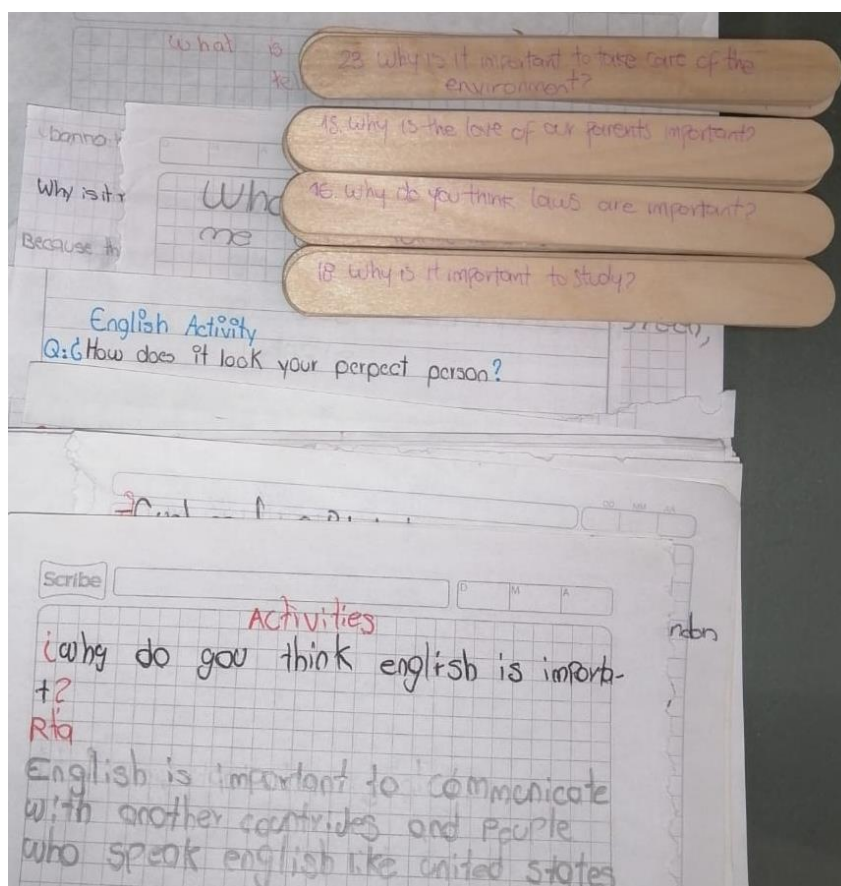 What is
te
23 Why is it important to take care of the
environment?
15. Why is the love of our parents important?
16. Why do you think laws are important?
18 Why is it important to study?
banno
Why is it
Because th
Who
me
English Activity
Q:¿How does it look your perpect person?
Scribe
D M A
Activities
¿why do you think english is importa-
t?
Rta
English is important to commenicate
with another countrides and people
who speak english like united states